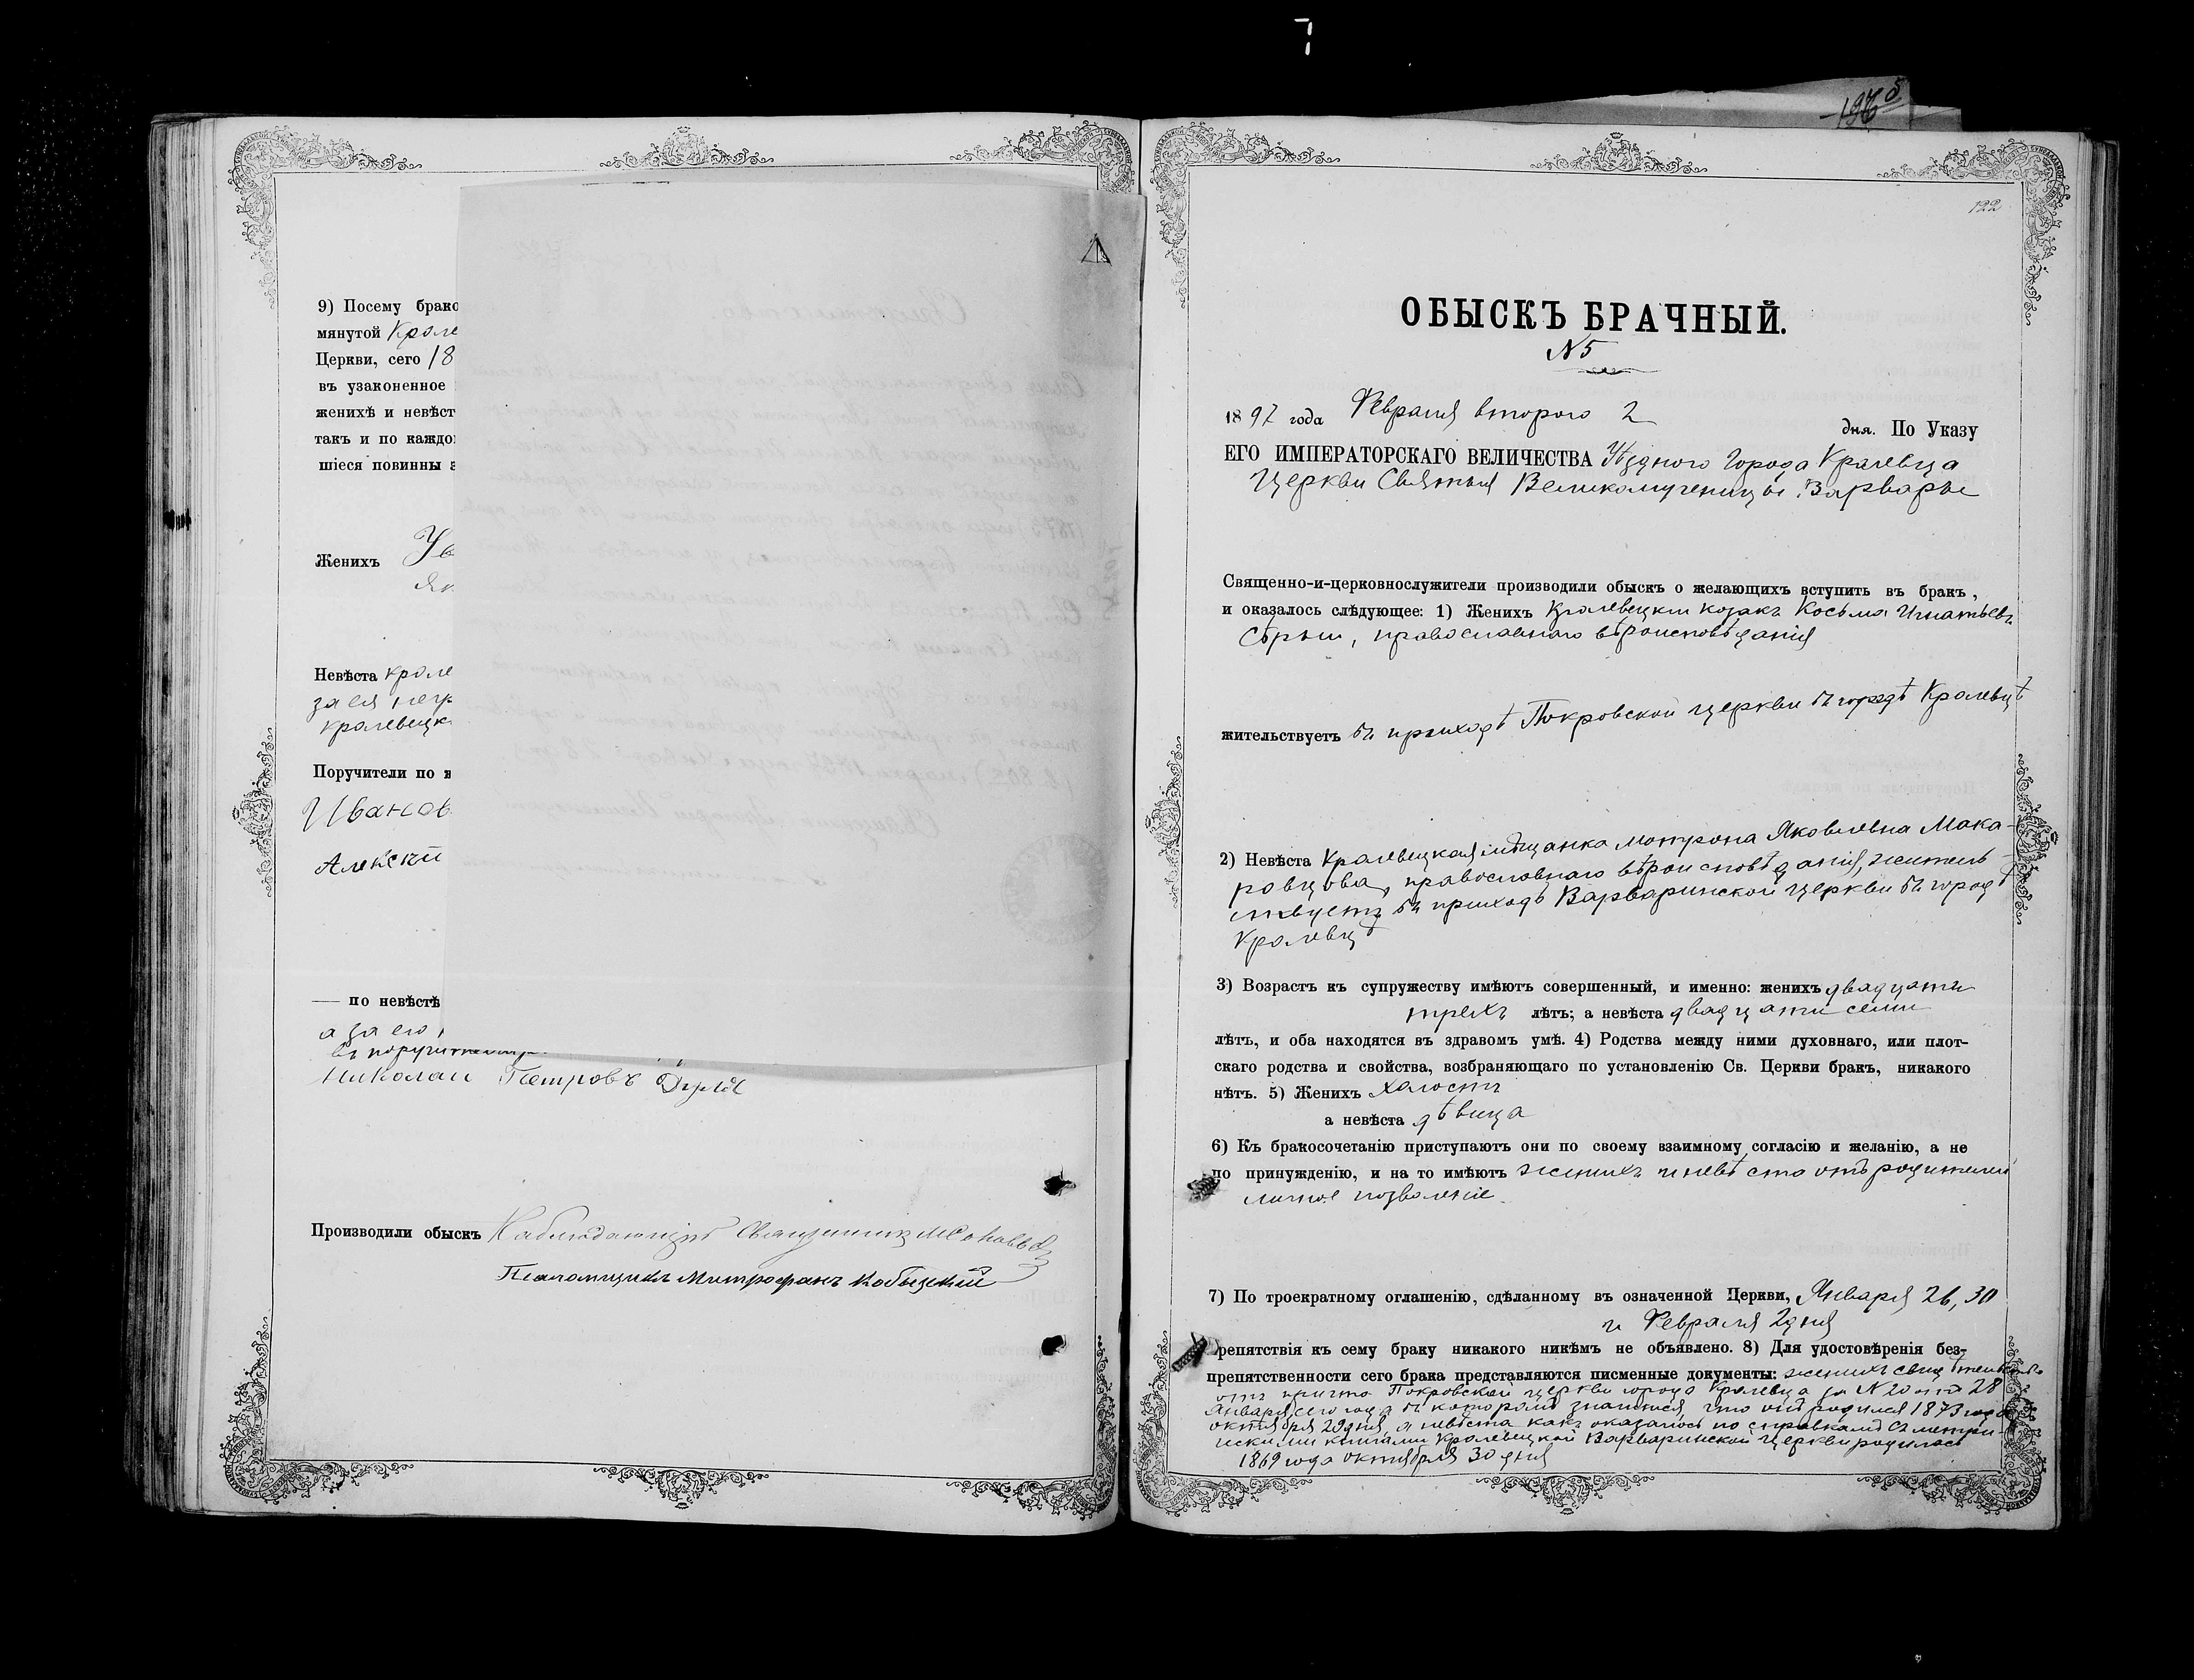 7
196 8
9) Посему брако
мянутой Кроле
Церкви, сего 18
въ узаконенное
женихѣ и невѣст
такъ и по каждо
шіеся повинны
Женихъ
Невѣста кроле
за ея негр
кролевецк
Поручители по
Иванов
Алексѣй
— по невѣстѣ
а за его
въ поручит
Николай Петровъ
Производили обыскъ Наблюдающій Священник
Псаломщикъ Митрофанъ Кобыцкій
122
ОБЫСКЪ БРАЧНЫЙ.
N 5
1897 года Февраля второго 2 дня. По Указу
ЕГО ИМПЕРАТОРСКАГО ВЕЛИЧЕСТВА Уѣздного города Кролевца
Церкви Святыя Великомученицы Варвары
Священно-и-церковнослужители производили обыскъ о желающихъ вступить въ бракъ,
и оказалось слѣдующее: 1) Женихъ Кролевецкій козакъ Косьма Игнатьевъ
Сѣрый, православнаго вѣроисповѣданія
жительствуетъ въ приходѣ Покровской церкви въ городѣ Кролевцѣ
2) Невѣста Кролевецкая мѣщанка Мотрона Яковлевна Мака-
ровцова, православнаго вѣроисповѣданія, житель-
ствуетъ въ приходѣ Варваринской церкви въ городѣ
Кролевцѣ
3) Возрастъ къ супружеству имѣютъ совершенный, и именно: женихъ двадцати
трехъ лѣтъ; а невѣста двадцати семи
лѣтъ, и оба находятся въ здравомъ умѣ. 4) Родства между ними духовнаго, или плот-
скаго родства и свойства, возбраняющаго по установленію Св. Церкви бракъ, никакого
нѣтъ. 5) Женихъ холостъ
а невѣста дѣвица
6) Къ бракосочетанію приступаютъ они по своему взаимному согласію и желанію, а не
по принужденію, и на то имѣютъ женихъ и невѣста отъ родителей
личное позволеніе
7) По троекратному оглашенію, сдѣланному въ означенной Церкви, Января 26, 30
и Февраля 2 дня
препятствія къ сему браку никакого никѣмъ не объявлено. 8) Для удостовѣренія без-
препятственности сего брака представляются писменные документы: женихъ свидѣтельство
отъ причта Покровской церкви города Кролевца за N 20 отъ 28
Января сего года въ которомъ значится, что онъ родился 1873 года
октября 29 дня, а невѣста какъ оказалось по справкамъ съ метри-
ческими книгами Кролевецкой Варваринской церкви родилась
1869 года октября 30 дня